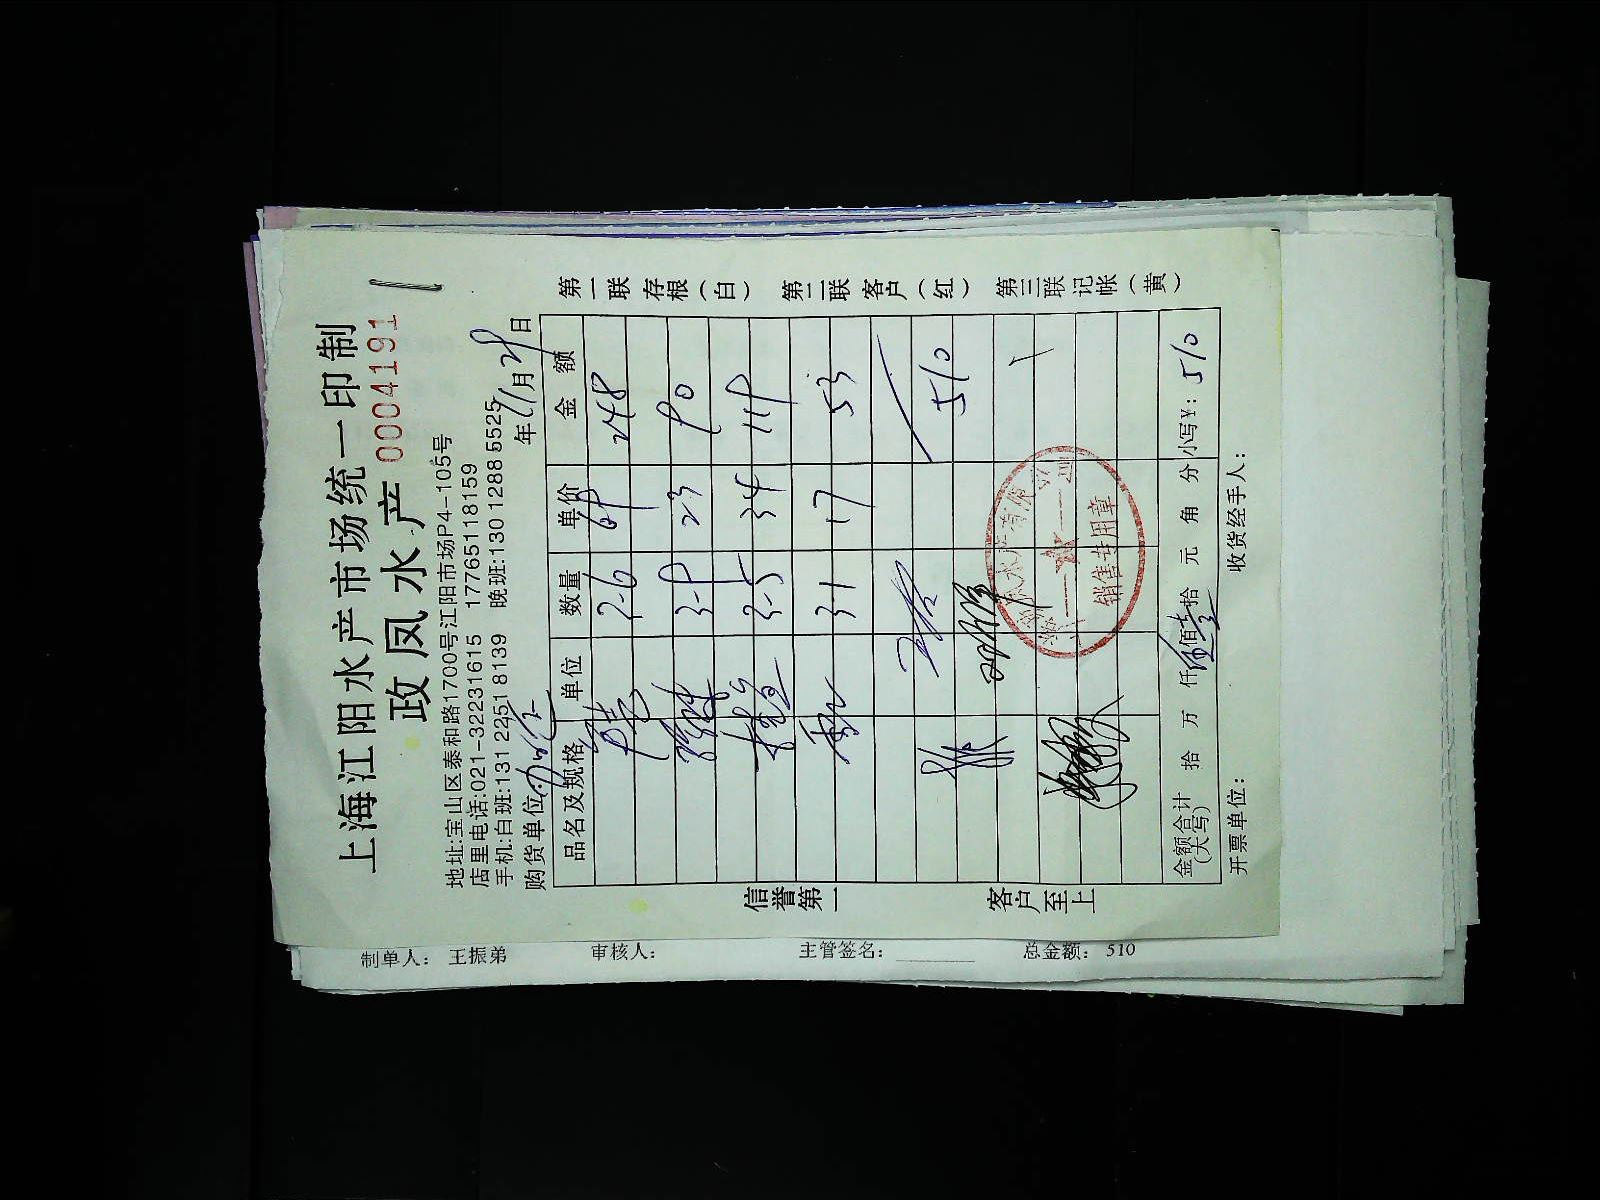 上海江阳水产市场统一印制
政凤水产 0004191
地址:宝山区泰和路1700号江阳市场P4-105号
店里电话:021-32231615 17765118159
手机:白班:131 2251 8139 晚班:130 1288 5525
购货单位: 年 11月29日
品名及规格 单位 数量 单价 金额
248
3-9 23 90
3-5 34 119
3-1 17 53
510
金额合计(大写) 拾 万 仟 佰 拾 元 角 分 小写¥: 510
开票单位: 收货经手人:
第一联 存根(白) 第二联 客户(红) 第三联 记帐(黄)
信誉第一 客户至上
销售专用章
制单人: 王振弟 审核人: 主管签名: 总金额: 510